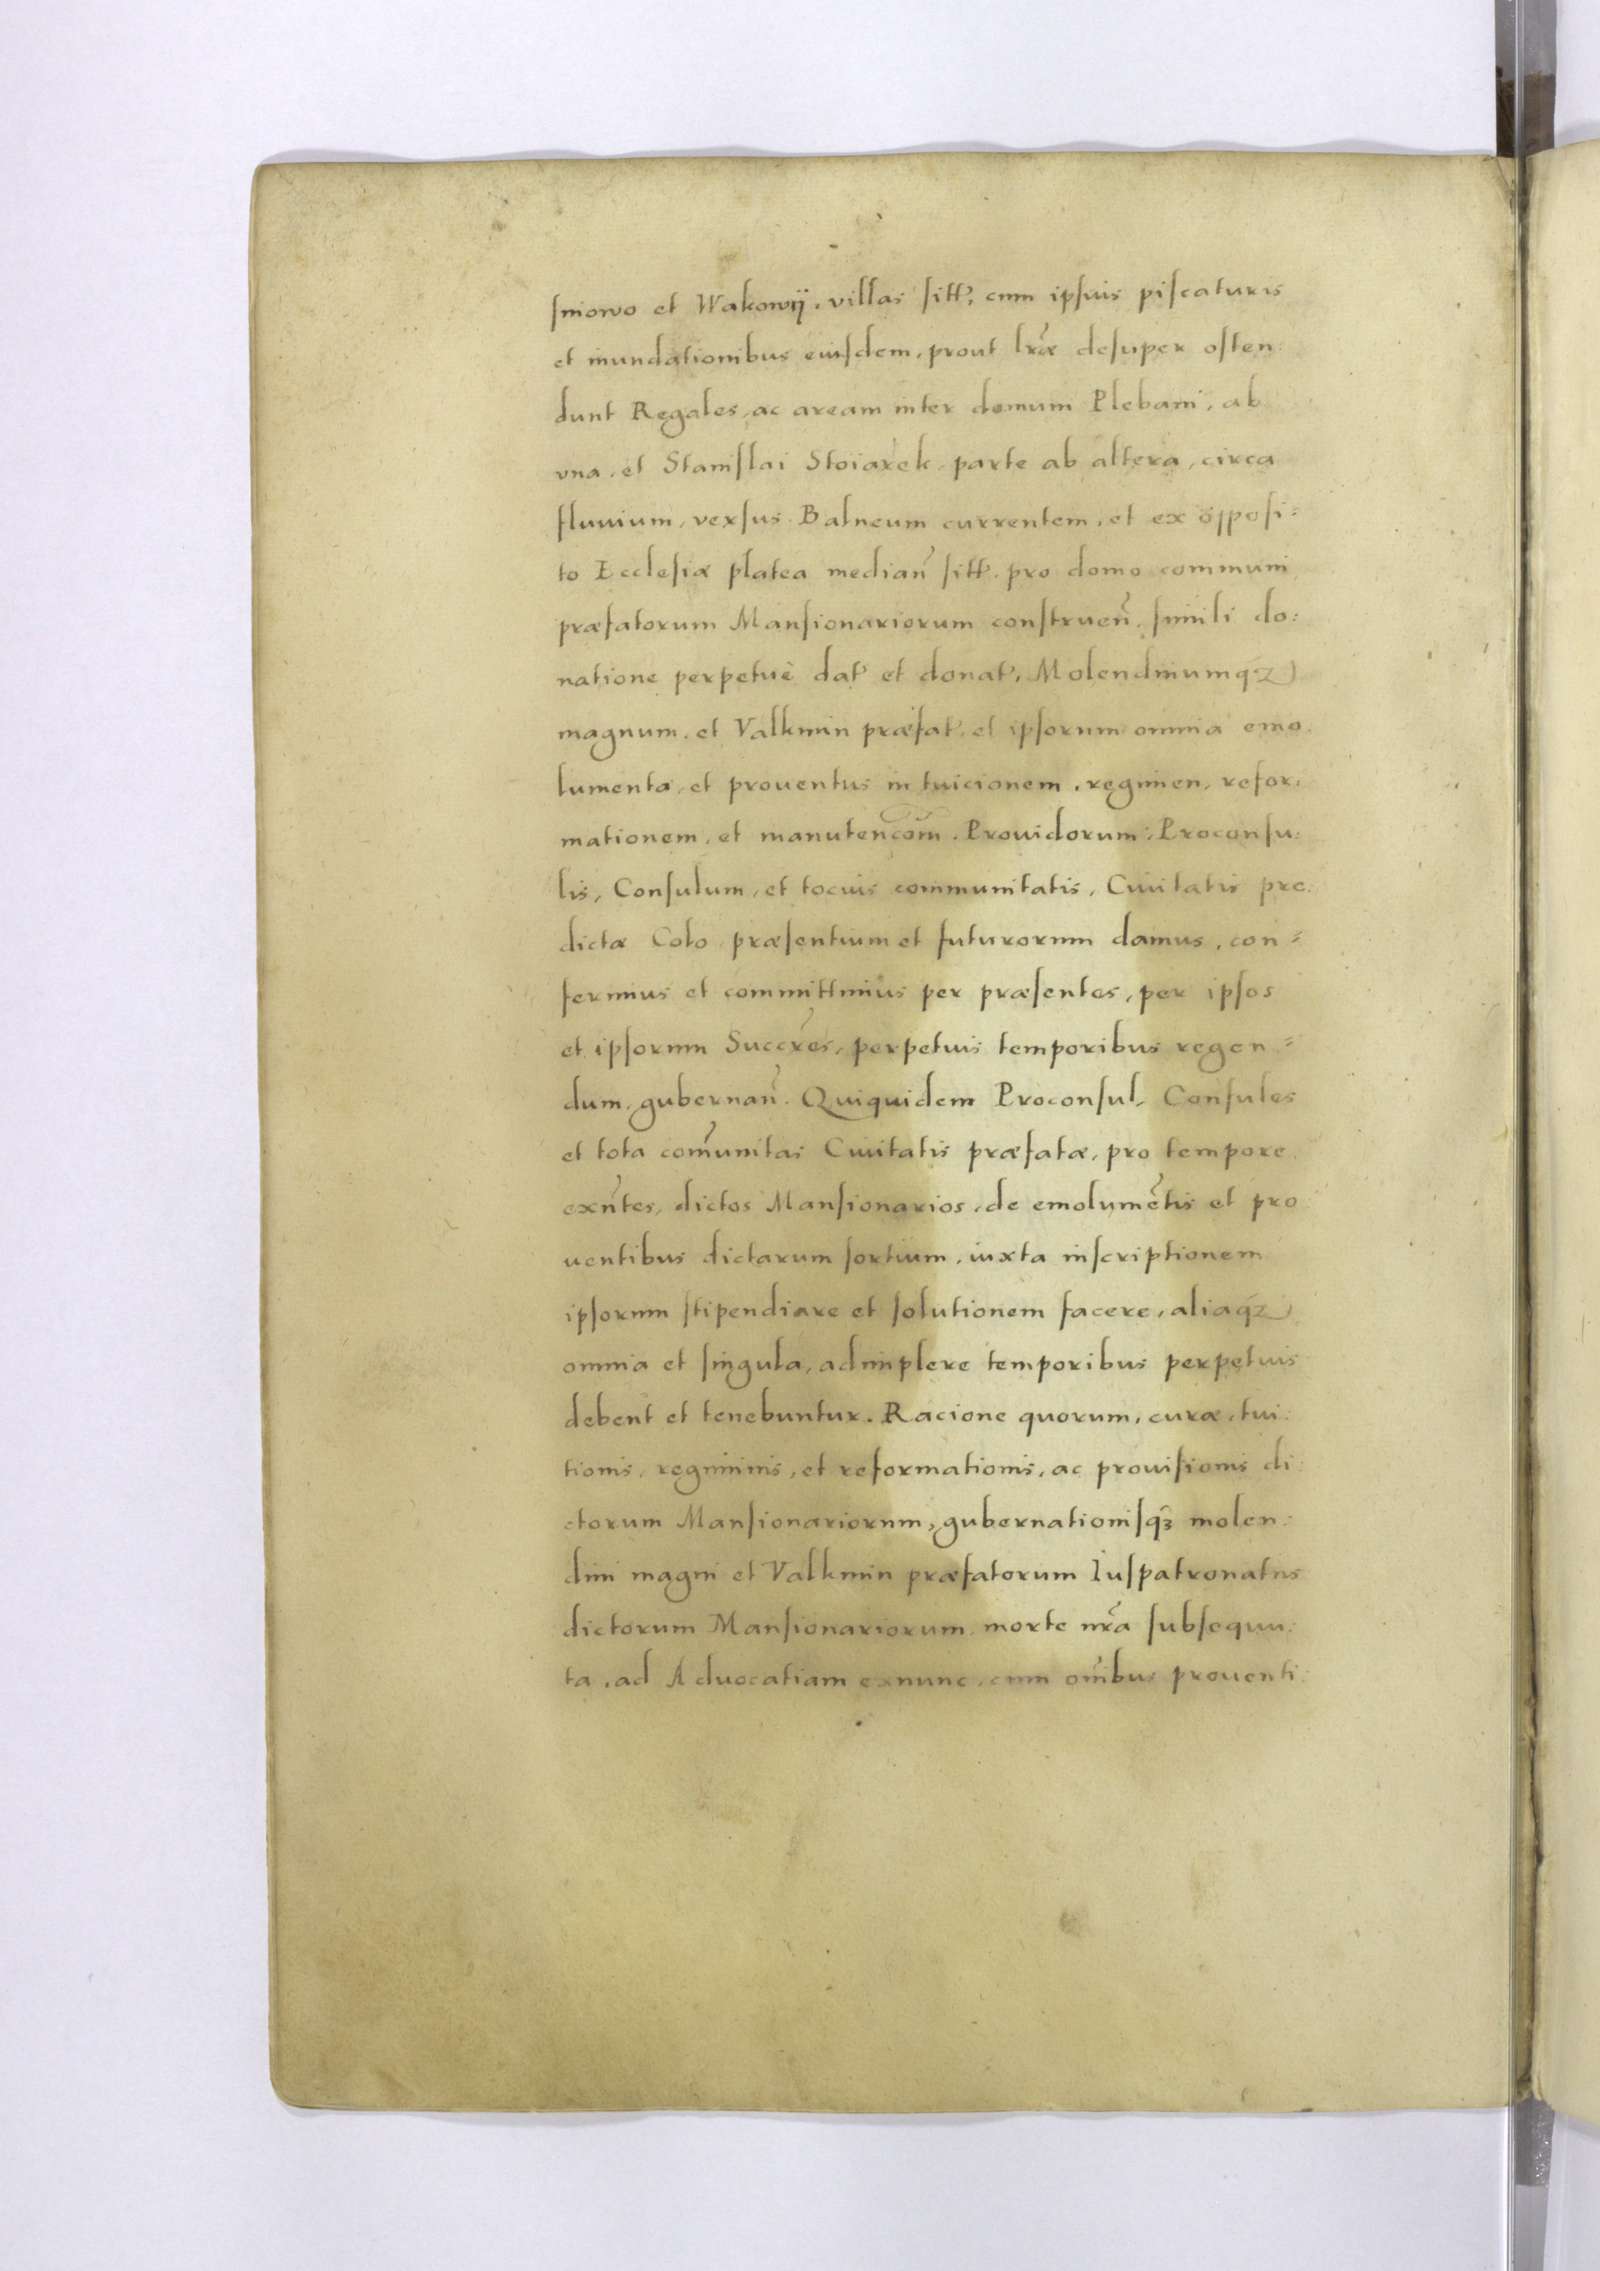 smowo et Wakowÿ, villas sitt̃, cum ipsius piscaturis
et inundationibus eiusdem, prout lr̃æ desuper osten:
dunt Regales, ac aream inter domum Plebani, ab
vna, et Stanislai Stoiarek parte ab altera, circa
fluuium, versus Balneum currentem, et ex opposi=
to Ecclesiæ platea median̄ sitt̃. pro domo communi
præfatorum Mansionariorum construen̄. simili do:
natione perpetuè dat̃ et donat̃, Molendinumqꝫ
magnum, et Valkmin præfat̃. et ipsorum omnia emo:
lumenta, et prouentus in tuicionem, regimen, refor:
mationem, et manutencōm. Prouidorum: Proconsu:
lis, Consulum, et tocius communitatis, Ciuitatis pre:
dictæ Colo præsentium et futurorum damus, con=
ferimus et committimus per præsentes, per ipsos
et ipsorum Succr̃es, perpetuis temporibus regen=
dum, gubernan̄. Quiquidem Proconsul, Consules
et tota com̃unitas Ciuitatis præfatæ, pro tempore
exñtes, dictos Mansionarios, de emolumẽtis et pro
uentibus dictarum sortium, iuxta inscriptionem
ipsorum stipendiare et solutionem facere, aliaqꝫ
omnia et singula, adimplere temporibus perpetuis
debent et tenebuntur. Racione quorum, curæ, tui:
tionis, regiminis, et reformationis, ac prouisionis di:
ctorum Mansionariorum, gubernationisqꝫ molen:
dini magni et Valkmin præfatorum Iuspatronatus
dictorum Mansionariorum, morte nr̃a subsequu:
ta, ad Aduocatiam exnunc, cum om̃ibus prouenti: